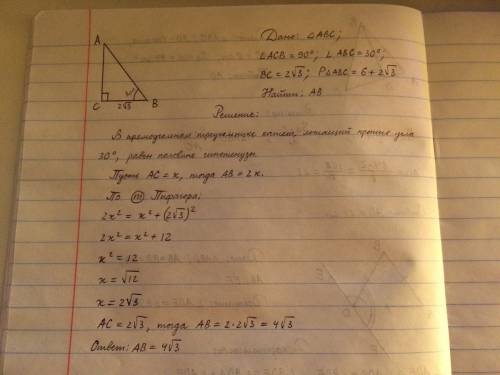 Дано: △ABC;
∠ACB = 90°; ∠ABC = 30°;
BC = 2√3; P△ABC = 6 + 2√3
Найти: AB
A
C
B
2√3
Решение:
В прямоугольном треугольнике катет, лежащий против угла
30°, равен половине гипотенузы
Пусть AC = x, тогда AB = 2x.
По т Пифагора:
2x² = x² + (2√3)²
2x² = x² + 12
x² = 12
x = √12
x = 2√3
AC = 2√3, тогда AB = 2·2√3 = 4√3
Ответ: AB = 4√3